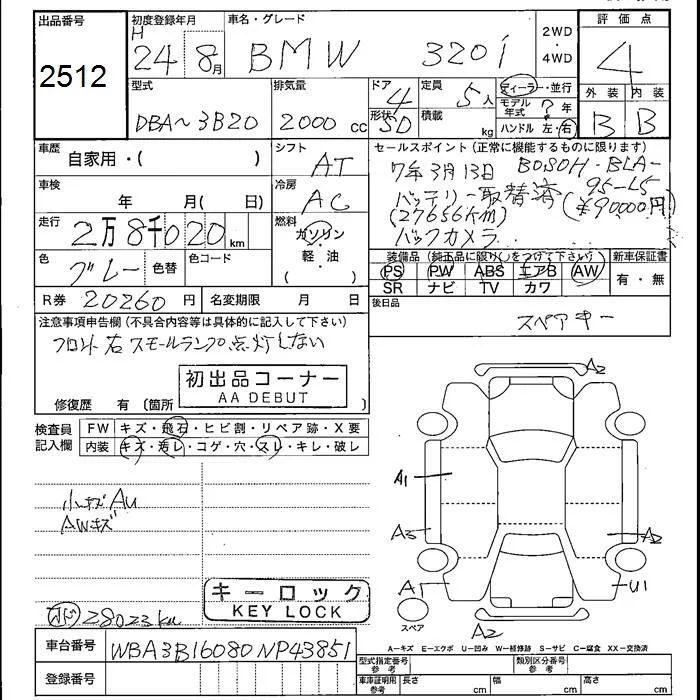 出品番号
2512
初度登録年月
H
24年8月
車名・グレード
BMW 320i
2WD
・
4WD
評価点
4
外装 内装
B B
型式
DBA~3B20
排気量
2000 cc
ドア
4
形状
SD
定員
5人
積載
kg
ディーラー・並行
モデル年式 ? 年
ハンドル 左・右
車歴
自家用・( )
シフト
AT
車検
年 月( 日)
冷房
AC
走行
2万8千020 km
燃料
ガソリン
・
軽・油
( )
色
グレー
色替
色コード
R券 20260円
名変期限 月 日
セールスポイント(正常に機能するものに限ります)
7年3月13日 BOSOH・BLA-
バッテリー取替済 95-L5
(27656km) (¥90000円)
バックカメラ
装備品(純正品に限り○をつけて下さい)
PS PW ABS エアB AW
SR ナビ TV カワ
新車保証書
有・無
後日品
スペアキー
注意事項申告欄(不具合内容等は具体的に記入して下さい)
フロント右スモールランプ点灯しない
初出品コーナー
AA DEBUT
修復歴 有(箇所 )
検査員
記入欄
FW キズ・飛石・ヒビ割・リペア跡・X要
内装 キズ・汚レ・コゲ・穴・スレ・キレ・破レ
小キズAU
AWキズ
キーロック
KEY LOCK
28023km
A2
A1
A3
A2
A1
U1
スペア
A2
A-キズ E-エクボ U-凹み W-補修跡 S-サビ C-腐食 XX-交換済
車台番号
WBA3B16080NP43851
登録番号
型式指定番号
参考
類別区分番号
参考
車庫証明用
参考
長さ cm
幅 cm
高さ cm